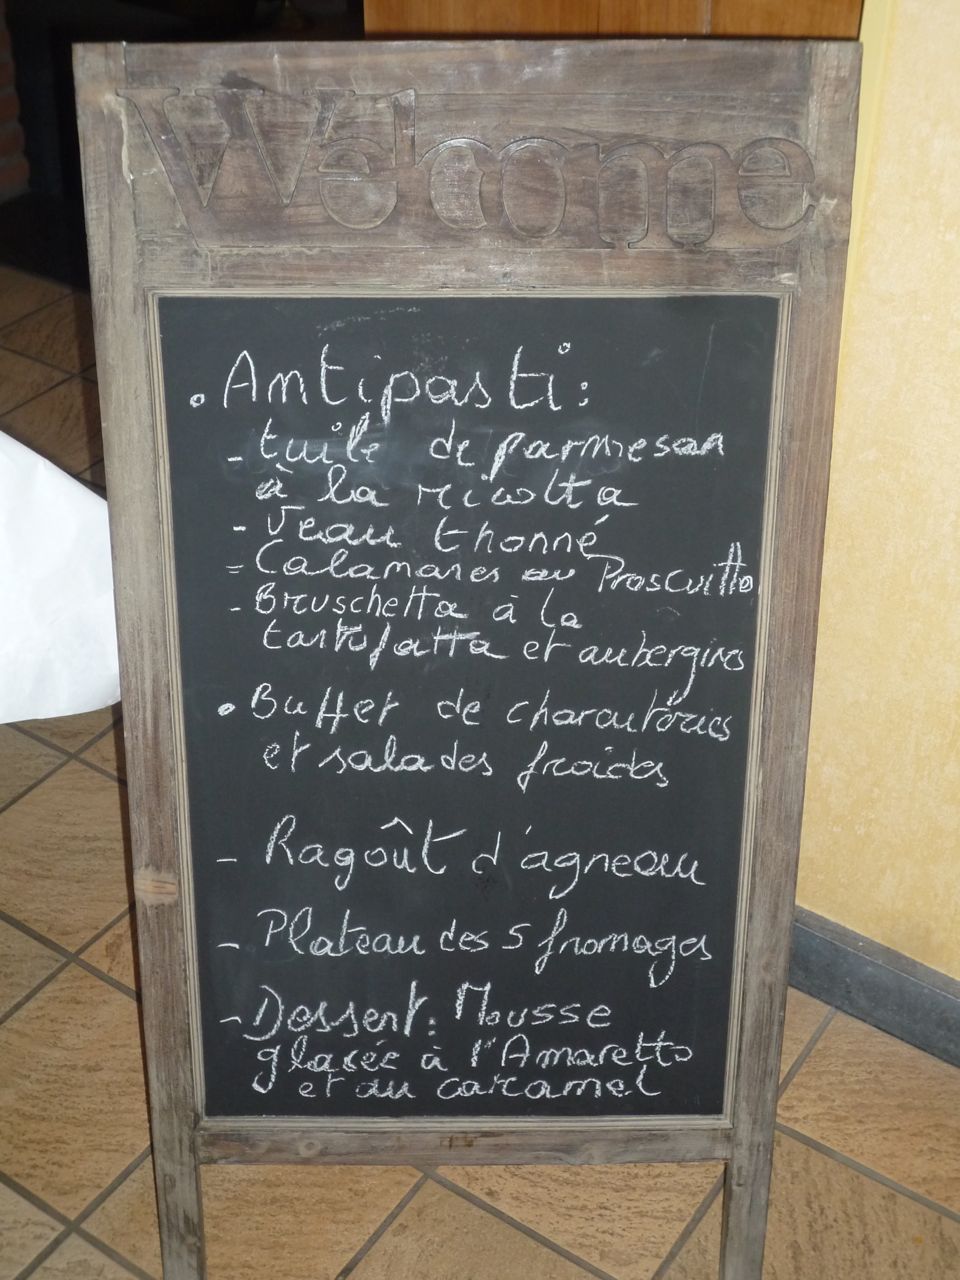 Welcome
• Antipasti :
- tuile de parmesan
à la ricotta
- Veau thonné
= Calamares au Proscuitto
- Bruschetta à la
tartufatta et aubergines
• Buffet de charcutéries
et salades froides
- Ragoût d'agneau
- Plateau des 5 fromages
- Dessert : Mousse
glacée à l'Amaretto
et au caramel